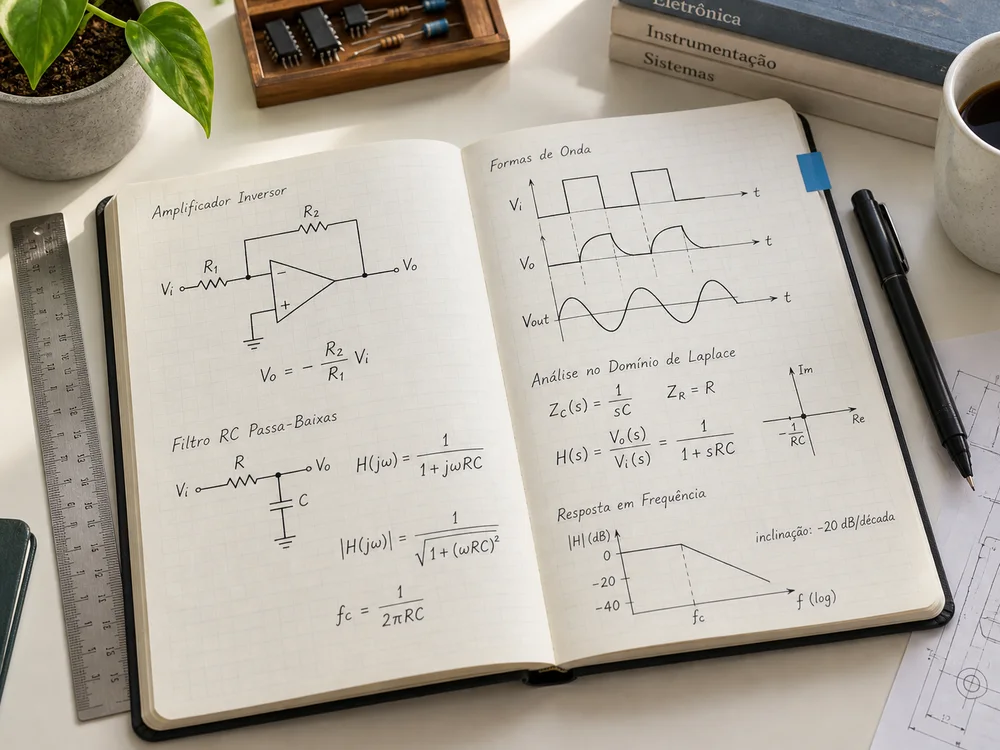 Eletrônica
Instrumentação
Sistemas
Amplificador Inversor
R₂
R₁
Vi
−
+
Vo
Vo = − R₂/R₁ Vi
Filtro RC Passa-Baixas
R
Vi
Vo
C
H(jω) = 1/(1 + jωRC)
|H(jω)| = 1/√(1 + (ωRC)²)
fc = 1/(2πRC)
Formas de Onda
Vi
t
Vo
t
Vout
t
Análise no Domínio de Laplace
Zc(s) = 1/(sC) ZR = R
H(s) = Vo(s)/Vi(s) = 1/(1 + sRC)
Im
Re
−1/RC
Resposta em Frequência
|H| (dB)
inclinação: −20 dB/década
0
−20
−40
fc
f (log)